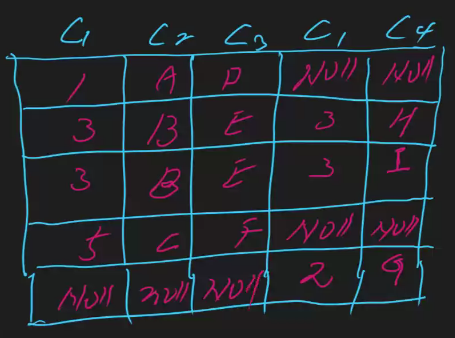 C1 C2 C3 C1 C4
1 A D NUll NUll
3 B E 3 H
3 B E 3 I
5 C F NUll NUll
NUll NUll NUll 2 G